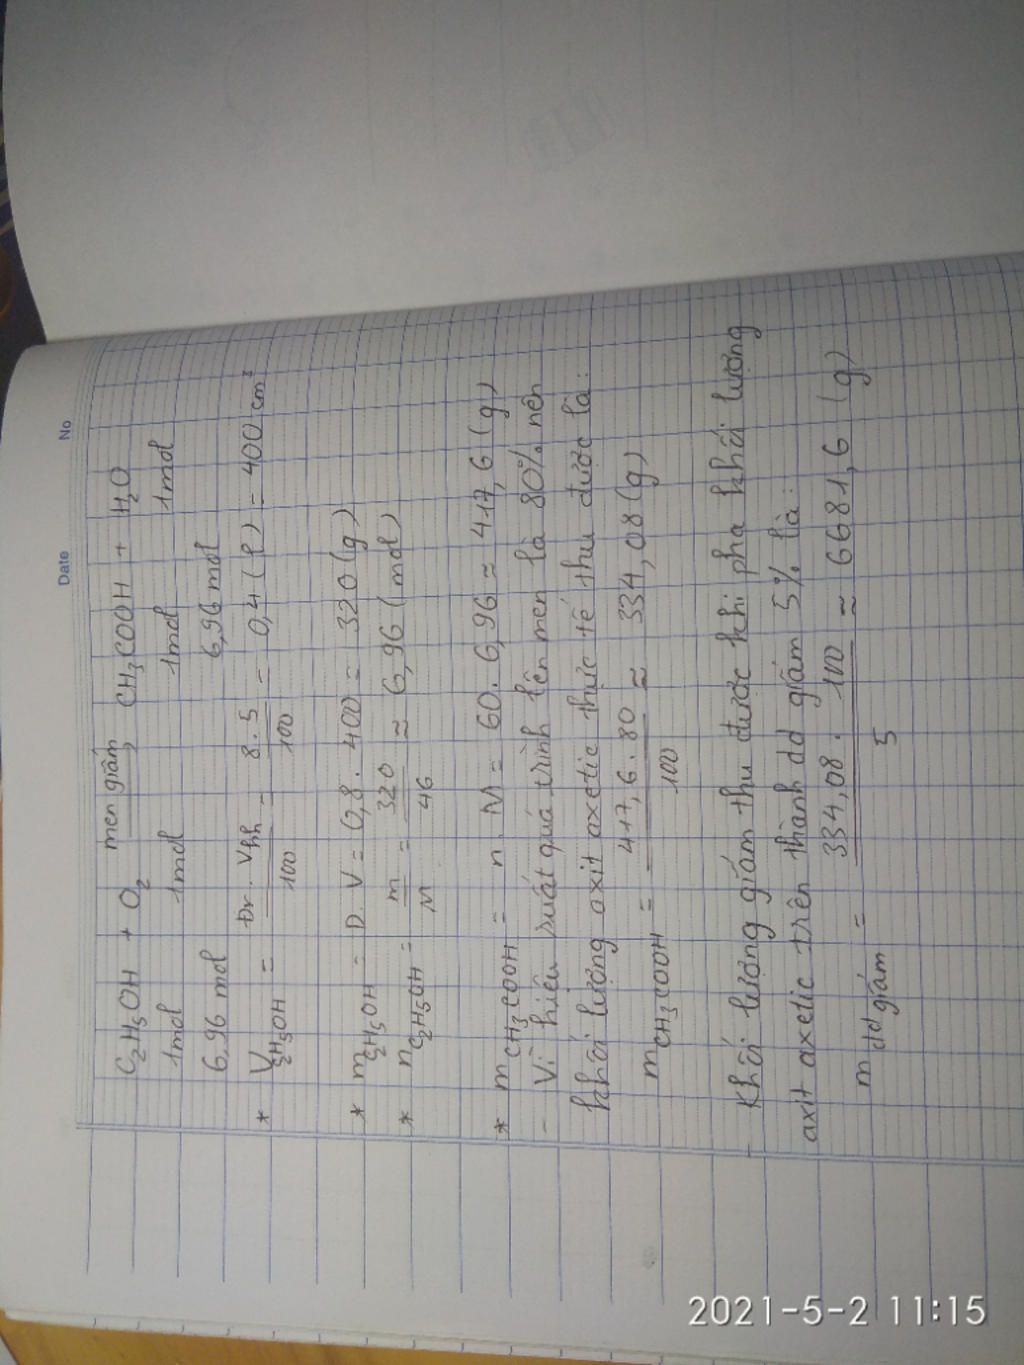 Date No
C₂H₅OH + O₂ men giấm → CH₃COOH + H₂O
1mol 1mol 1mol 1mol
6,96 mol 6,96 mol
* V C₂H₅OH = Đr . Vhh / 100 = 8 . 5 / 100 = 0,4 (l) = 400 cm³
* m C₂H₅OH = D . V = 0,8 . 400 = 320 (g)
* n C₂H₅OH = m / M = 320 / 46 ≈ 6,96 (mol)
* m CH₃COOH = n . M = 60 . 6,96 ≈ 417,6 (g)
- Vì hiệu suất quá trình lên men là 80% nên
khối lượng axit axetic thực tế thu được là:
m CH₃COOH = 417,6 . 80 / 100 ≈ 334,08 (g)
- Khối lượng giấm thu được khi pha khối lượng
axit axetic trên thành dd giấm 5% là:
m dd giấm = 334,08 . 100 / 5 ≈ 6681,6 (g)
2021-5-2 11:15